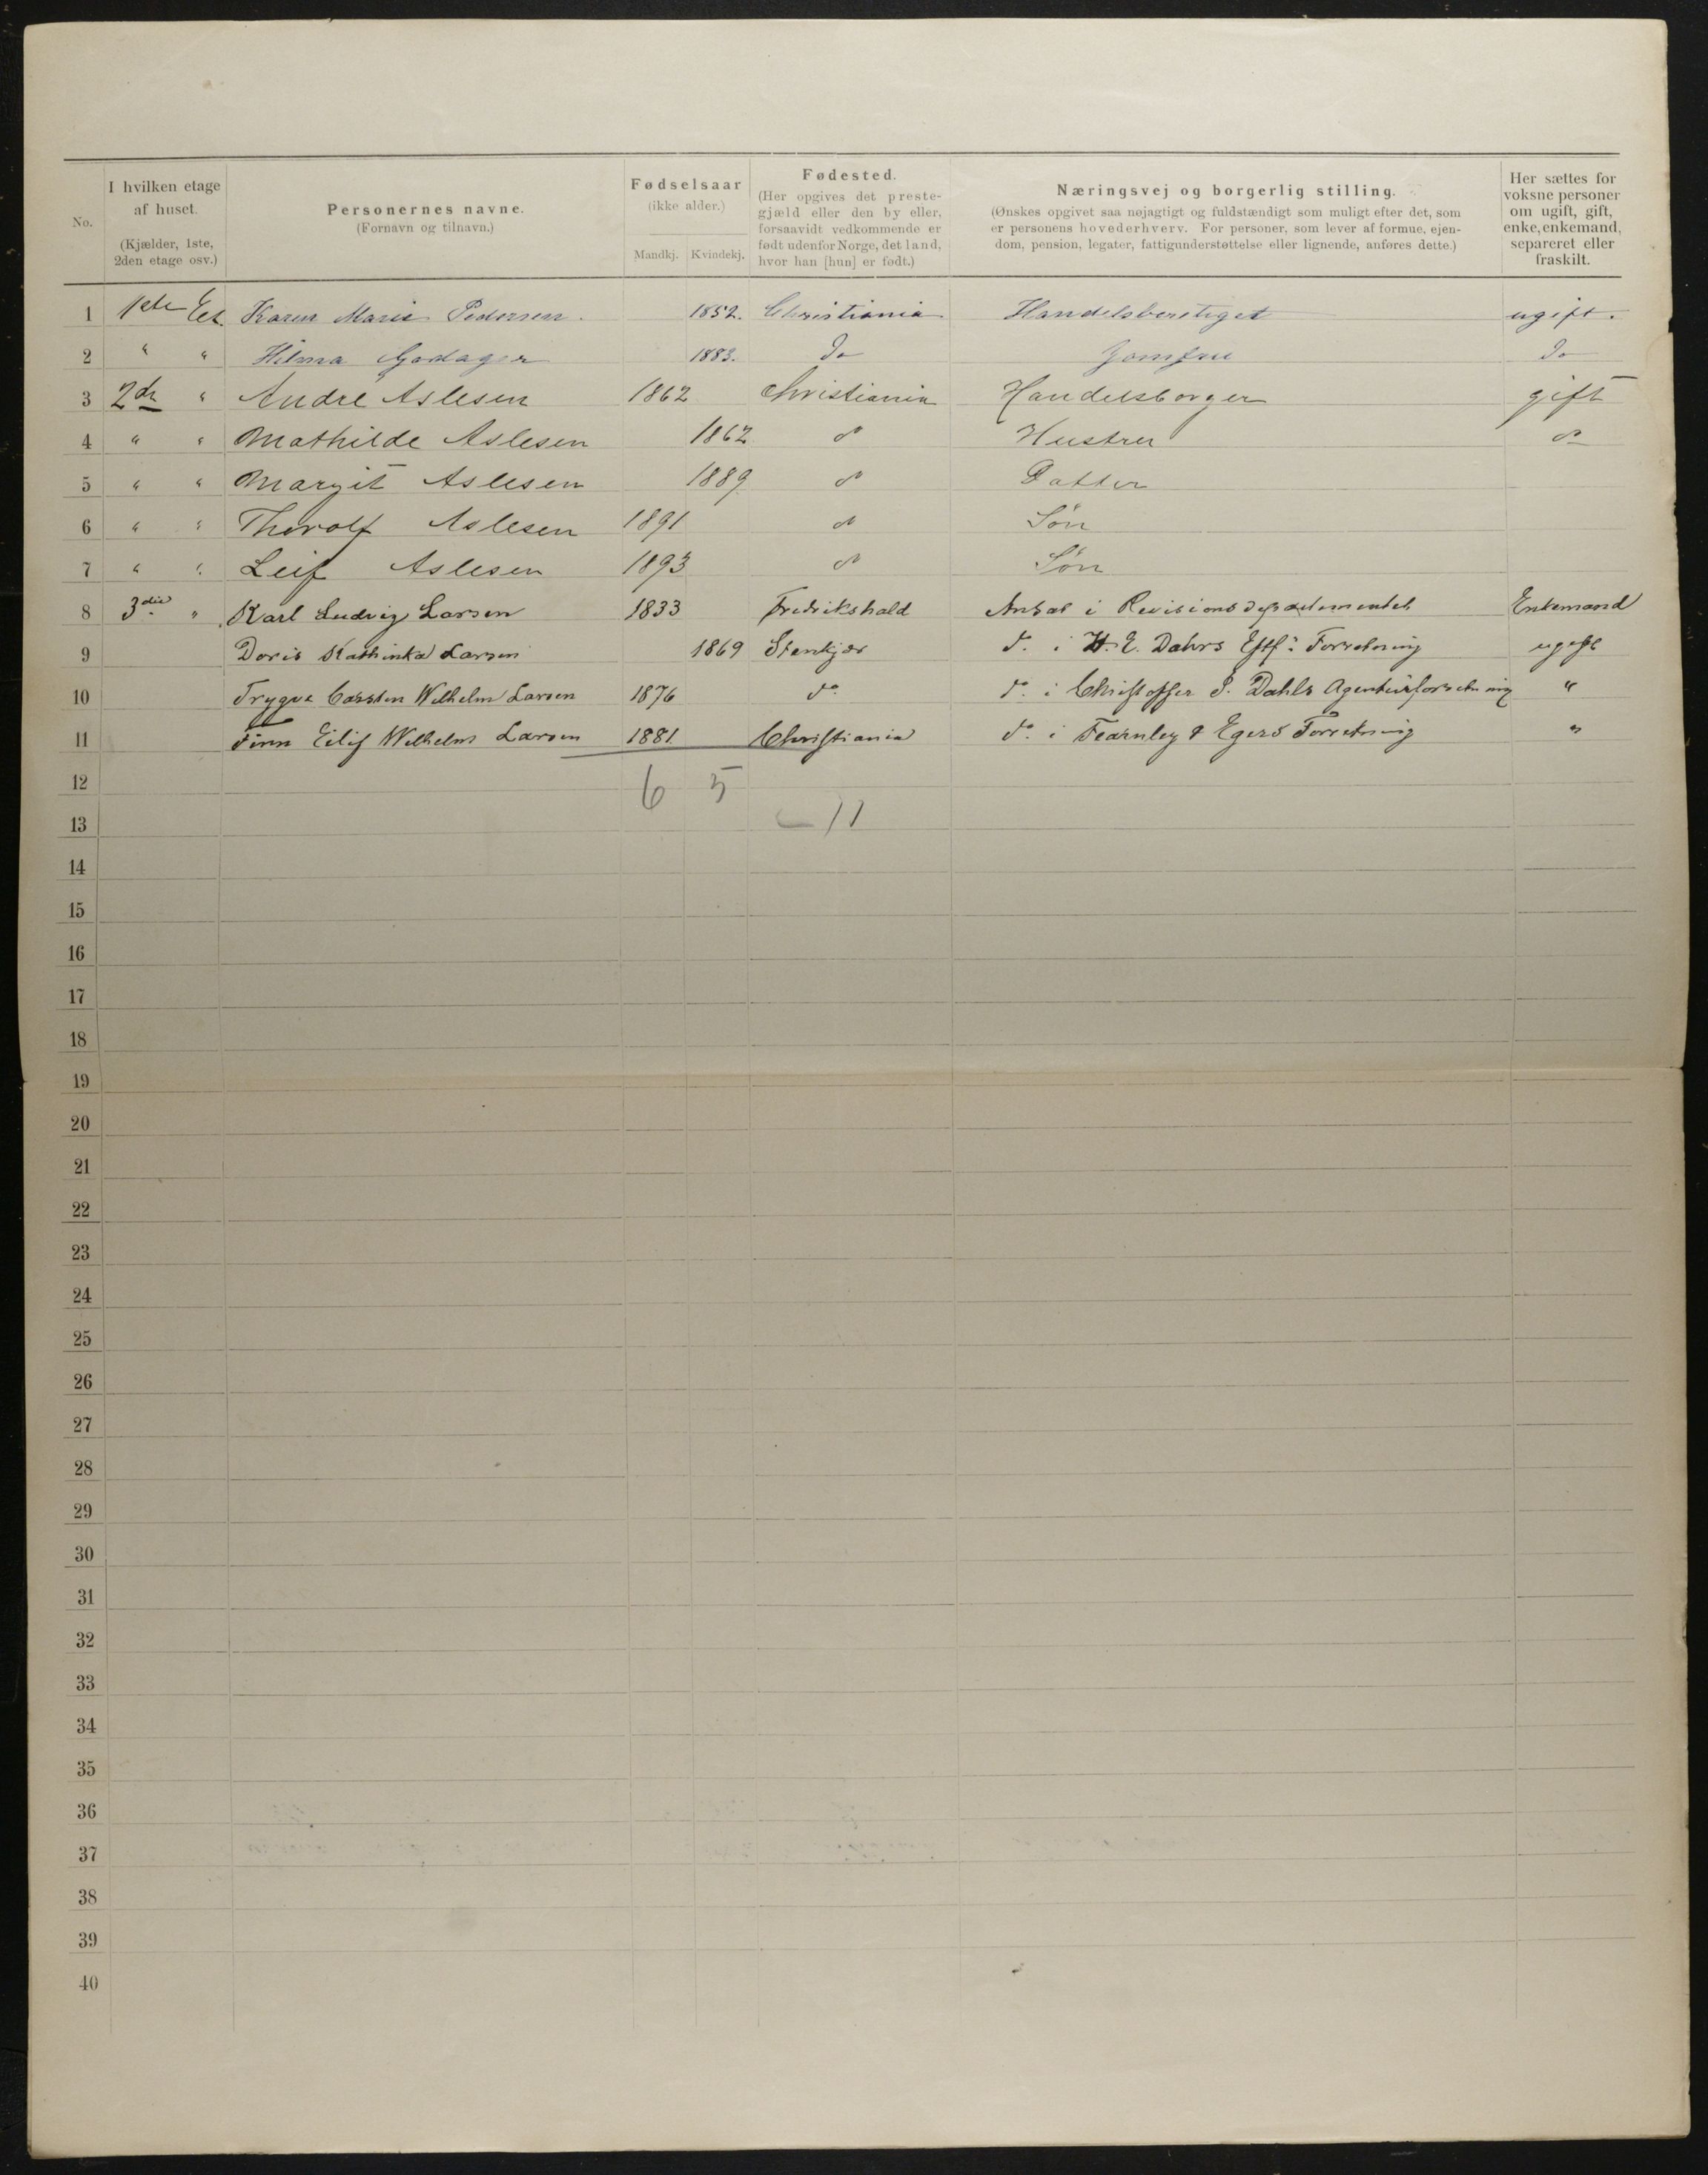 No. | I hvilken etage af huset. (Kjælder, 1ste, 2den etage osv.) | Personernes navne. (Fornavn og tilnavn.) | Fødselsaar (ikke alder.) Mandkj. Kvindekj. | Fødested. (Her opgives det prestegjæld eller den by eller, forsaavidt vedkommende er født udenfor Norge, det land, hvor han [hun] er født.) | Næringsvej og borgerlig stilling. (Ønskes opgivet saa nøjagtigt og fuldstændigt som muligt efter det, som er personens hovederhverv. For personer, som lever af formue, ejendom, pension, legater, fattigunderstøttelse eller lignende, anføres dette.) | Her sættes for voksne personer om ugift, gift, enke, enkemand, separeret eller fraskilt.
1 1ste Et. Karen Marie Pedersen. 1852. Christiania Handelsberetiget ugift.
2 " " Hilma Godager 1883. do Jomfru do
3 2dn " André Aslesen 1862 Christiania Handelsborger gift
4 " " Mathilde Aslesen 1862 do Hustru do
5 " " Margit Aslesen 1889 do Datter
6 " " Thorolf Aslesen 1891 do Søn
7 " " Leif Aslesen 1893 do Søn
8 3die " Karl Ludvig Larsen 1833 Fredrikshald Ansat i Revisionsdepartementet Enkemand
9 Doris Kathinka Larsen 1869 Stenkjær do. i H. E. Dahrs Eftf: Forretning ugift
10 Trygve Carsten Wilhelm Larsen 1876 do do. i Christoffer P. Dahls Agenturforretning "
11 Finn Eilif Wilhelm Larsen 1881 Christiania do. i Fearnley & Egers Forretning "
12 6 5
13 11
14
15
16
17
18
19
20
21
22
23
24
25
26
27
28
29
30
31
32
33
34
35
36
37
38
39
40